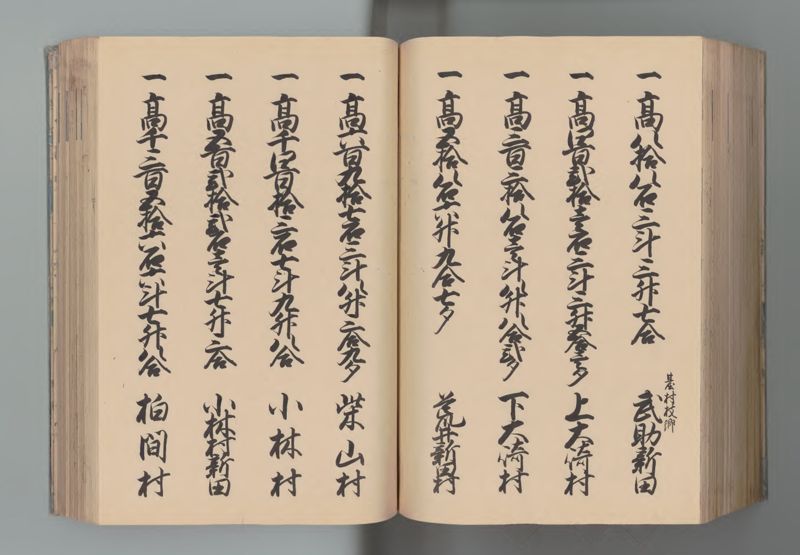 一 高八拾八石三斗三升七合 基村枝郷 武助新田
一 高四百弐拾壱石三斗三升五合壱夕 上大崎村
一 高三百三拾八石壱斗八升八合弐夕 下大崎村
一 高五拾八石六升九合七夕 荒井新田村
一 高六百九拾七石三斗八升三合九夕 柴山村
一 高千四百拾三石七斗九升八合 小林村
一 高五百弐拾弐石壱斗七升三合 小林村新田
一 高千三百五拾六石八斗七升八合 柏間村